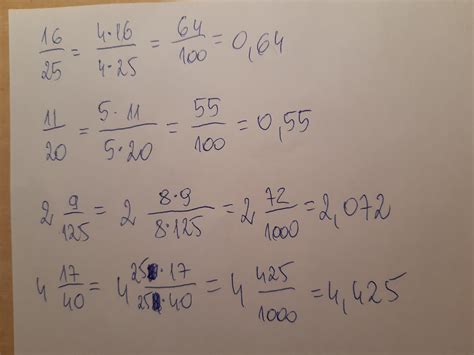 16/25 = 4·16/4·25 = 64/100 = 0,64
11/20 = 5·11/5·20 = 55/100 = 0,55
2 9/125 = 2 8·9/8·125 = 2 72/1000 = 2,072
4 17/40 = 4 25·17/25·40 = 4 425/1000 = 4,425